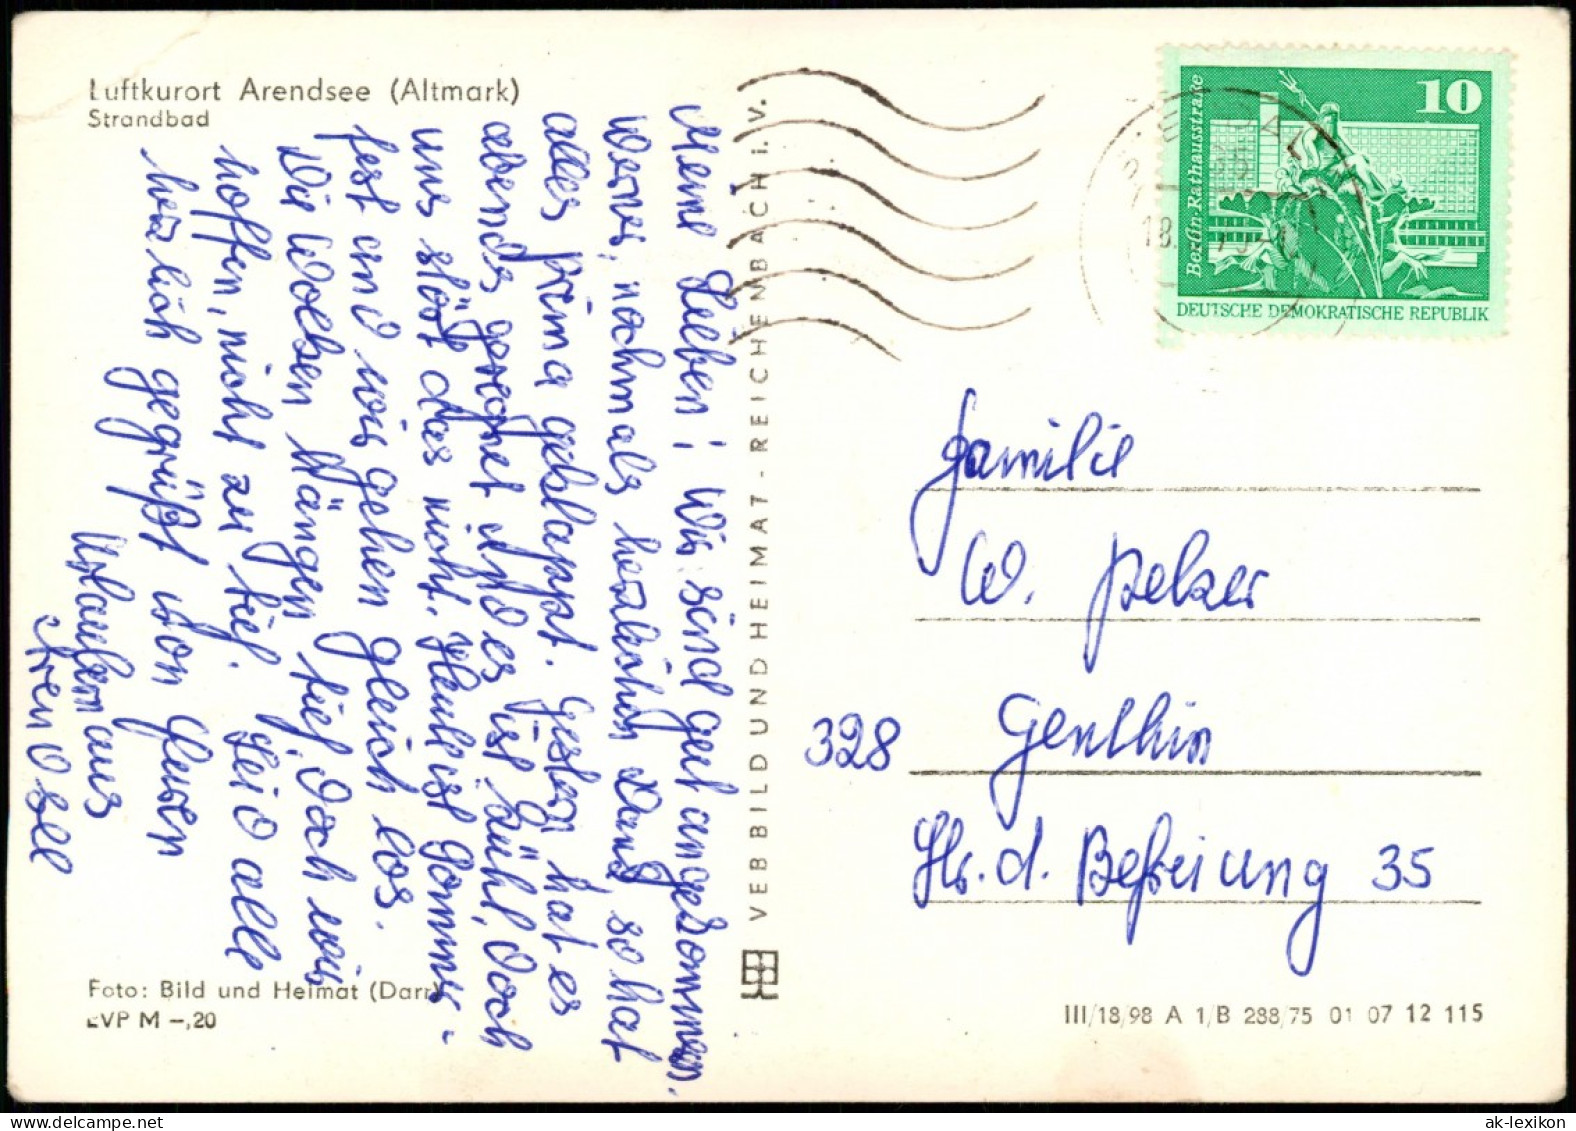 Luftkurort Arendsee (Altmark)
Strandbad
Meine Lieben! Wir sind gut angekommen.
Werner, nochmals herzlichen Dank, so hat
alles prima geklappt. Gestern hat es
abends geregnet und es ist kühl, doch
uns stört das nicht. Heute ist Sommer-
fest und wir gehen gleich los.
Die Wolken hängen tief, doch wir
hoffen, nicht zu tief. Seid alle
herzlich gegrüßt von Euren
Urlaubern aus
Arendsee
Foto: Bild und Heimat (Darr)
EVP M –,20
VEB BILD UND HEIMAT · REICHENBACH i. V.
Berlin-Rathausstraße
10
DEUTSCHE DEMOKRATISCHE REPUBLIK
18.
Familie
W. Pelzer
328 Genthin
Str. d. Befreiung 35
III/18/98 A 1/B 288/75 01 07 12 115
ak-lexikon